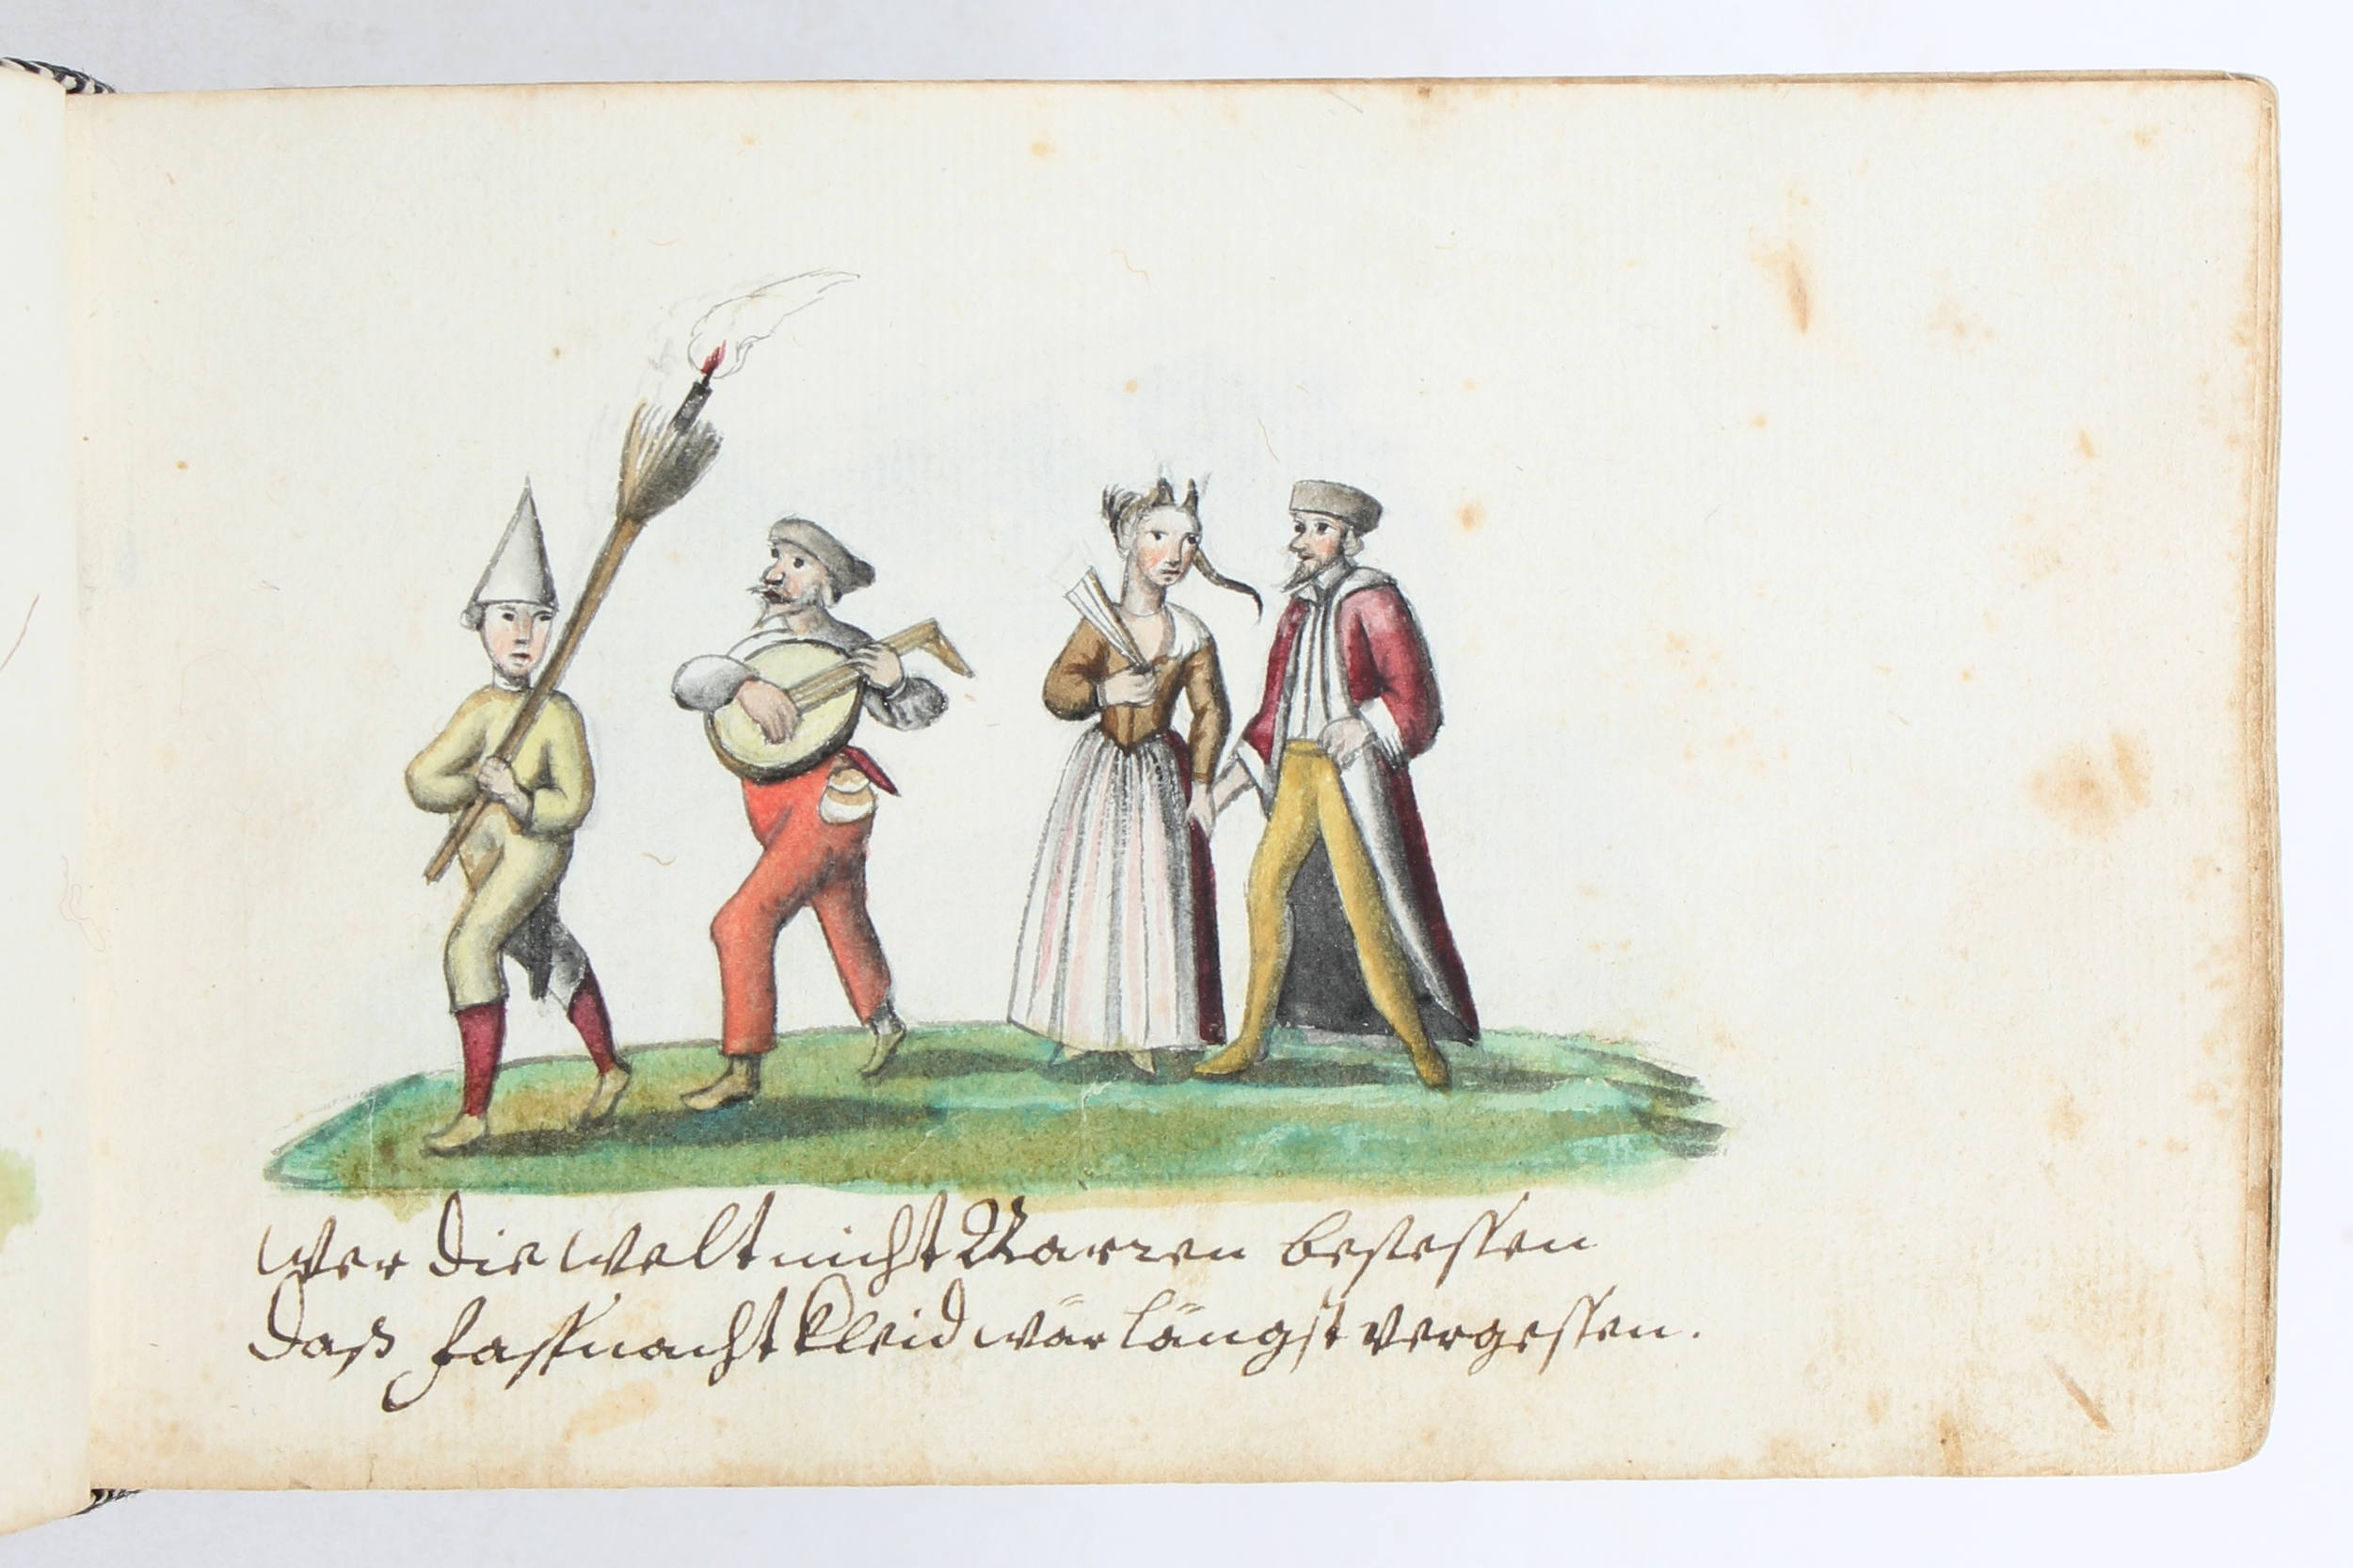 Wer die Welt nicht Narren besessen
Daß fassnacht kleid wär längst vergessen.